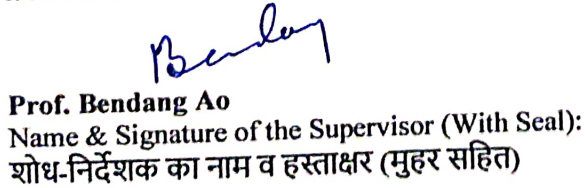 Bendang
Prof. Bendang Ao
Name & Signature of the Supervisor (With Seal):
शोध-निर्देशक का नाम व हस्ताक्षर (मुहर सहित)